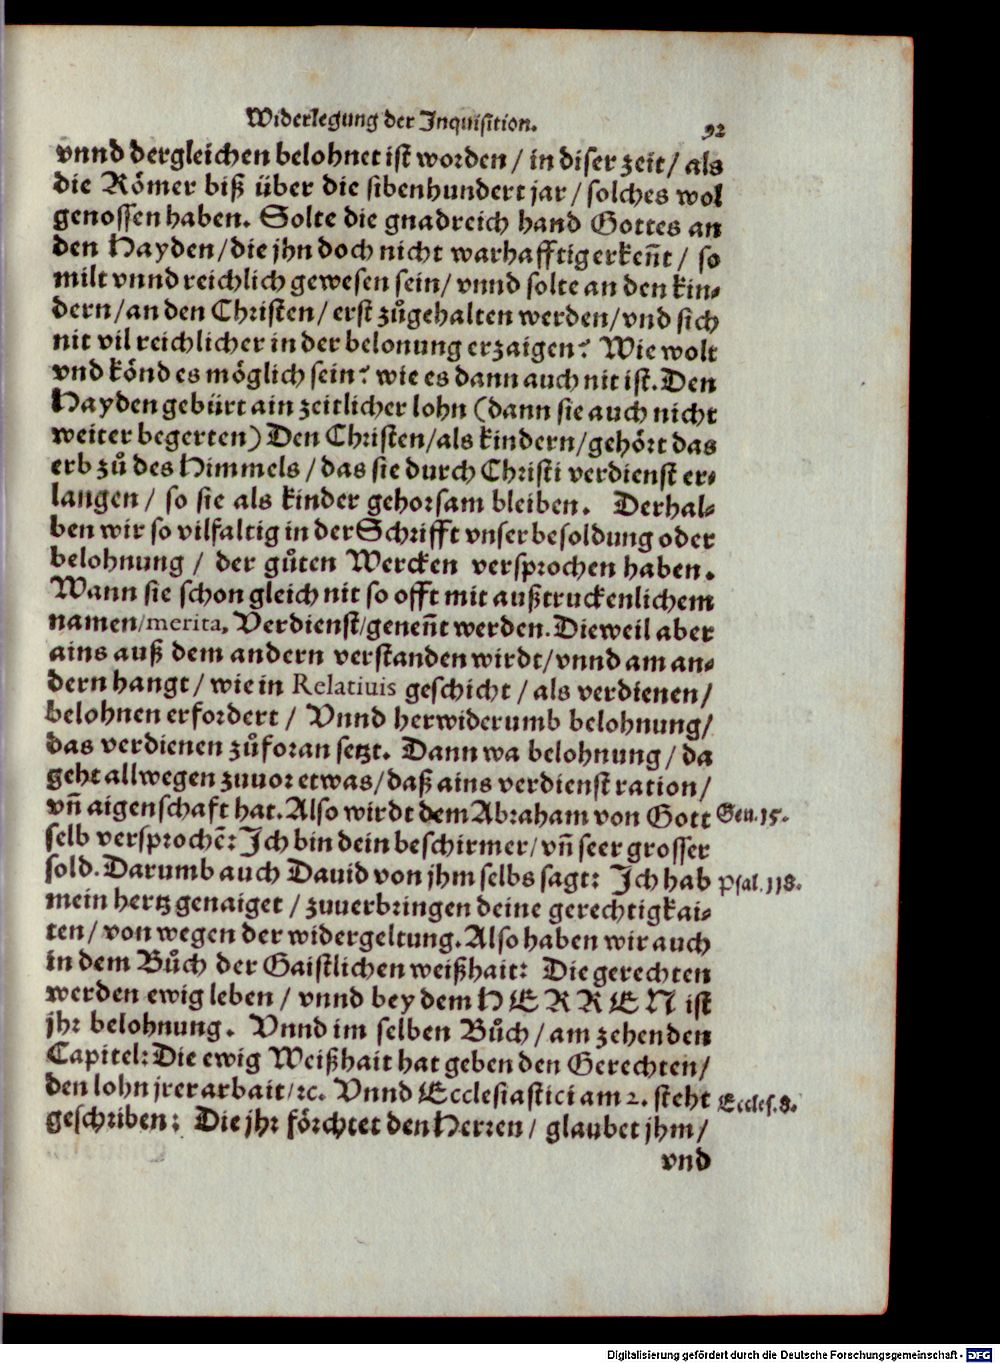 Widerlegung der Inquisition.
92
vnnd dergleichen belohnet ist worden / in diser zeit / als
die Römer biß über die sibenhundert jar / solches wol
genossen haben. Solte die gnadreich hand Gottes an
den Hayden / die jhn doch nicht warhafftig erkeñt / so
milt vnnd reichlich gewesen sein / vnnd solte an den kin⸗
dern / an den Christen / erst zůgehalten werden / vnd sich
nit vil reichlicher in der belonung erzaigen? Wie wolt
vnd könd es möglich sein? wie es dann auch nit ist. Den
Hayden gebürt ain zeitlicher lohn (dann sie auch nicht
weiter begerten) Den Christen / als kindern / gehört das
erb zů des Himmels / das sie durch Christi verdienst er⸗
langen / so sie als kinder gehorsam bleiben. Derhal⸗
ben wir so vilfaltig in der Schrifft vnser besoldung oder
belohnung / der gůten Wercken versprochen haben.
Wann sie schon gleich nit so offt mit außtruckenlichem
namen / merita, Verdienst / geneñt werden. Dieweil aber
ains auß dem andern verstanden wirdt / vnnd am an⸗
dern hangt / wie in Relatiuis geschicht / als verdienen /
belohnen erfordert / Vnnd herwiderumb belohnung /
das verdienen zůforan setzt. Dann wa belohnung / da
geht allwegen zuuor etwas / daß ains verdienst ration /
vñ aigenschaft hat. Also wirdt dem Abraham von Gott
Gen. 15.
selb versprochẽ: Ich bin dein beschirmer / vñ seer grosser
sold. Darumb auch Dauid von jhm selbs sagt: Ich hab
Psal. 118.
mein hertz genaiget / zuuerbringen deine gerechtigkai⸗
ten / von wegen der widergeltung. Also haben wir auch
in dem Bůch der Gaistlichen weißhait: Die gerechten
werden ewig leben / vnnd bey dem HERREN ist
jhr belohnung. Vnnd im selben Bůch / am zehenden
Capitel: Die ewig Weißhait hat geben den Gerechten /
den lohn jrer arbait / ꝛc. Vnnd Ecclesiastici am 2. steht
Eccles. 8.
geschriben: Die jhr förchtet den Herren / glaubet jhm /
vnd
Digitalisierung gefördert durch die Deutsche Forschungsgemeinschaft - DFG